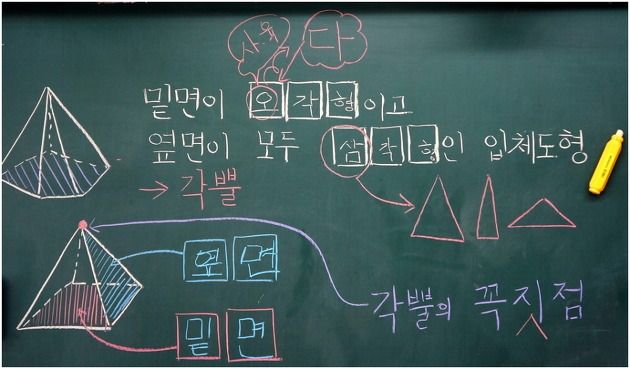 사, 육 다
밑면이 오각형이고
옆면이 모두 삼각형인 입체도형
→ 각뿔
옆면
각뿔의 꼭지점
밑면